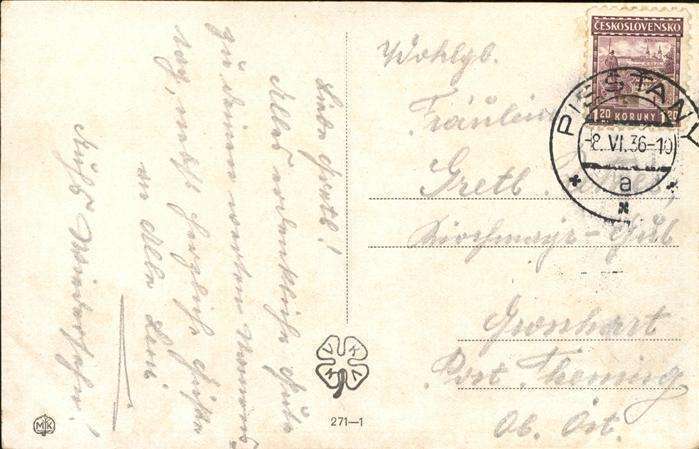 Liebe Gretl!
Alles erdenklich Gute
zu deinem werten Namens-
tag, nebst herzliche Grüße
an Alle Leni
Auf Wiedersehn!
Wohlgb.
Fräulein
Gretl
Kirchmayr-Gut
Gronhart
Post Thening
Ob. Öst.
ČESKOSLOVENSKO
1.20 KORUNY 1.20
PIEŠŤANY
-8.VI.36-10
a
V K V K
271—1
MK